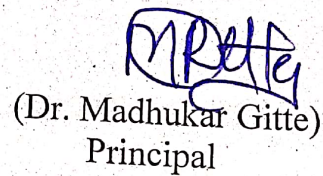 (Dr. Madhukar Gitte)
Principal